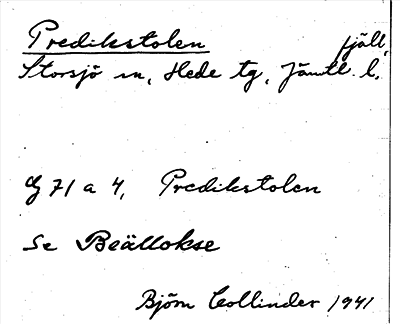 Predikstolen fjäll,
Storsjö sn, Hede tg, Jämtl. l.
G 71 a 4, Predikstolen
Se Beällokse
Björn Collinder 1941